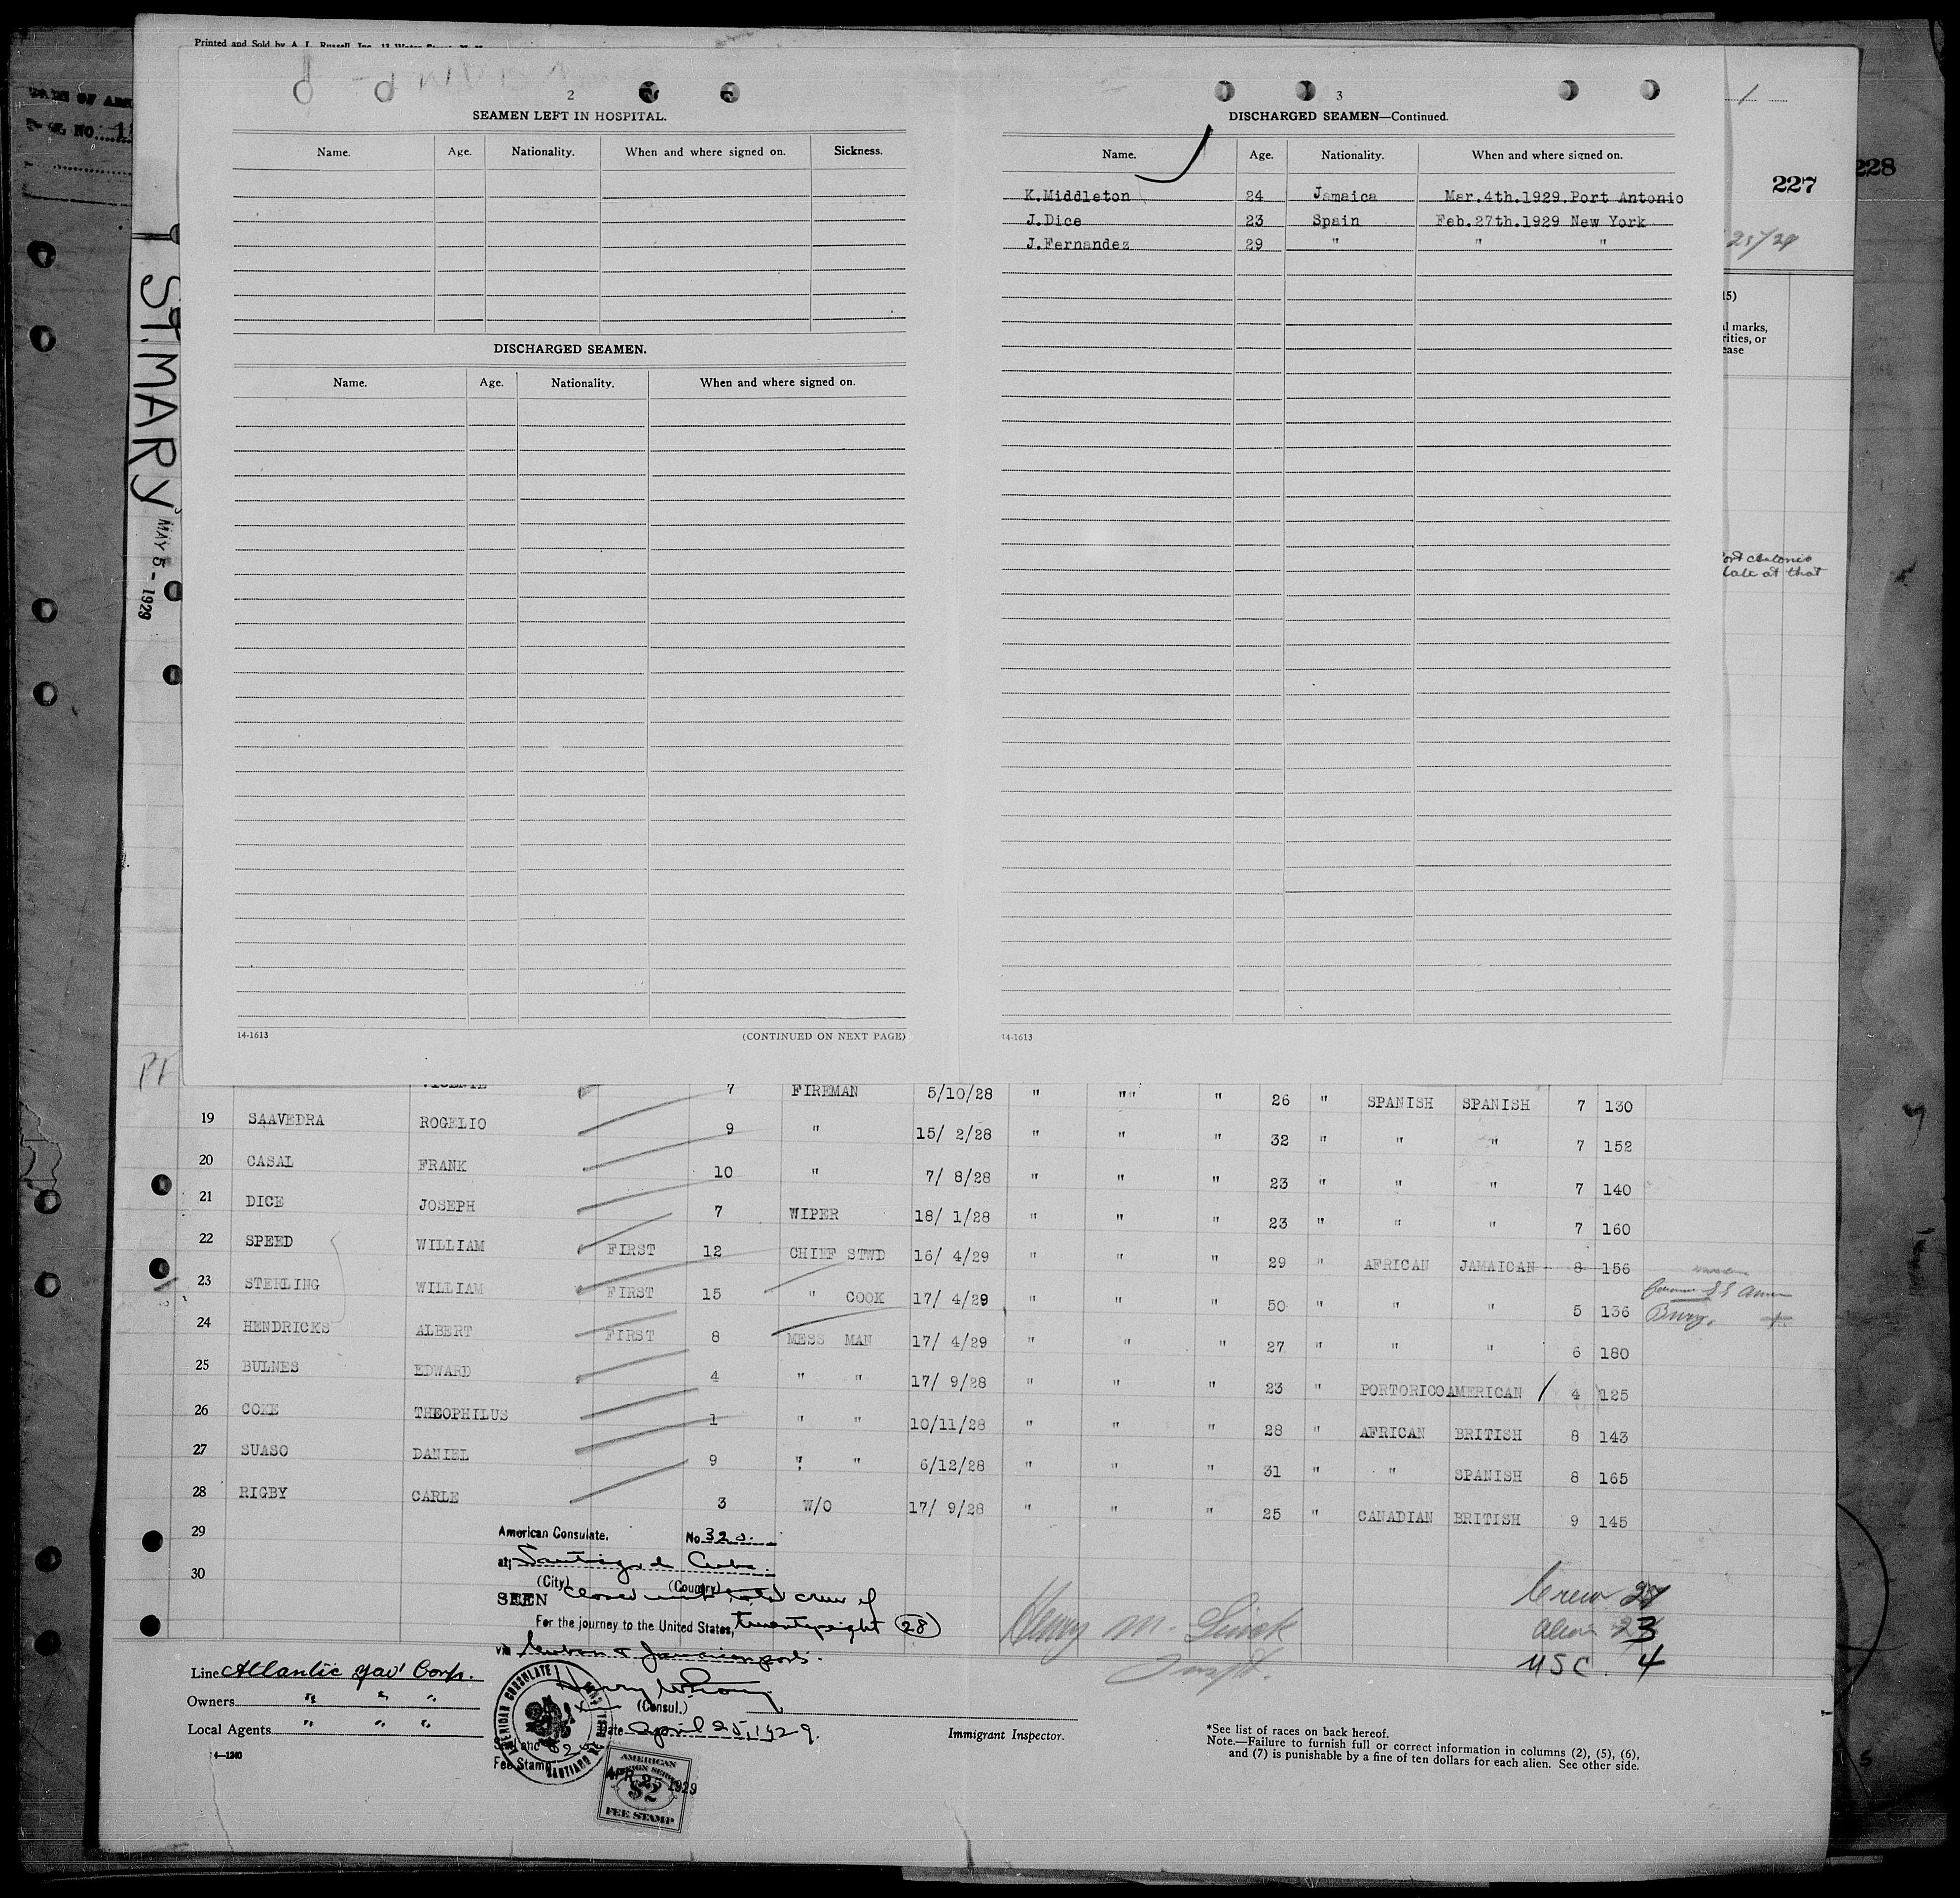 Printed and Sold by A. L. Russell, Inc.
2
SEAMEN LEFT IN HOSPITAL.
Name. Age. Nationality. When and where signed on. Sickness.
DISCHARGED SEAMEN.
Name. Age. Nationality. When and where signed on.
14-1613 (CONTINUED ON NEXT PAGE)
3
DISCHARGED SEAMEN—Continued.
Name. Age. Nationality. When and where signed on.
K.Middleton 24 Jamaica Mar.4th.1929.Port Antonio
J.Dice 23 Spain Feb.27th.1929 New York
J.Fernandez 29 " " "
14-1613
1
227
228
25/29
15)
marks,
rities, or
ease
late at that
ST. MARY
MAY 5 - 1929
VICENTE 7 FIREMAN 5/10/28 " "" " 26 " SPANISH SPANISH 7 130
19 SAAVEDRA ROGELIO 9 " 15/ 2/28 " " " 32 " " " 7 152
20 CASAL FRANK 10 " 7/ 8/28 " " " 23 " " " 7 140
21 DICE JOSEPH 7 WIPER 18/ 1/28 " " " 23 " " " 7 160
22 SPEED WILLIAM FIRST 12 CHIEF STWD 16/ 4/29 " " " 29 " AFRICAN JAMAICAN 8 156
23 STERLING WILLIAM FIRST 15 " COOK 17/ 4/29 " " " 50 " " " 5 136
24 HENDRICKS ALBERT FIRST 8 MESS MAN 17/ 4/29 " " " 27 " " " 6 180
25 BULNES EDWARD 4 " " 17/ 9/28 " " " 23 " PORTORICO AMERICAN 4 125
26 COKE THEOPHILUS 1 " " 10/11/28 " " " 28 " AFRICAN BRITISH 8 143
27 SUASO DANIEL 9 " " 6/12/28 " " " 31 " " SPANISH 8 165
28 RIGBY CARLE 3 W/O 17/ 9/28 " " " 25 " CANADIAN BRITISH 9 145
29
30
American Consulate, No. 320.
at Santiago de Cuba.
(City) (Country)
SEEN closed with total crew of
For the journey to the United States, twentyeight (28)
via
(Consul.)
Date April 25, 1929.
Fee Stamp
AMERICAN CONSULATE
SANTIAGO DE
AMERICAN
FOREIGN SERVICE
$2
FEE STAMP
APR 25 1929
Crew
Alien 3
USC. 4
Line Atlantic Nav' Corp.
Owners " " "
Local Agents " " "
14-1240
Immigrant Inspector.
*See list of races on back hereof.
Note.—Failure to furnish full or correct information in columns (2), (5), (6),
and (7) is punishable by a fine of ten dollars for each alien. See other side.